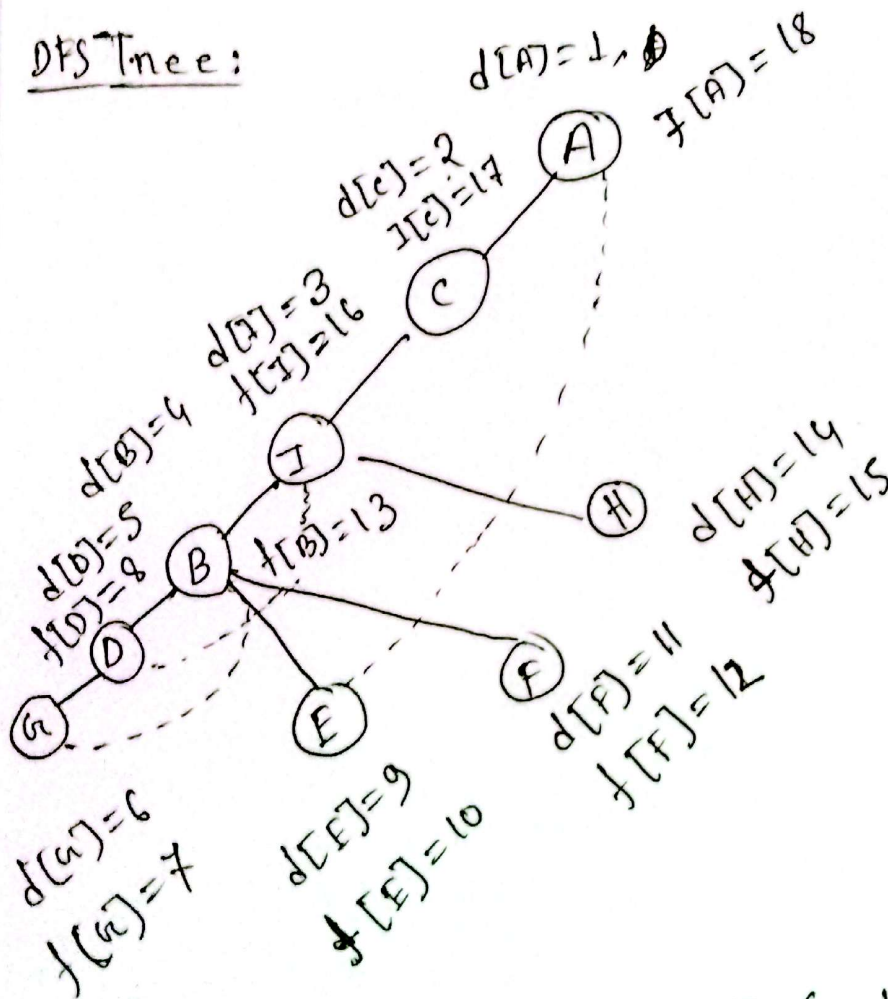 DFS Tree:
d[A]=1,
f[A]=18
A
d[C]=2
f[C]=17
C
d[I]=3
f[I]=16
I
d[B]=4
f[B]=13
B
d[H]=14
f[H]=15
H
d[D]=5
f[D]=8
D
G
E
F
d[F]=11
f[F]=12
d[G]=6
f[G]=7
d[E]=9
f[E]=10